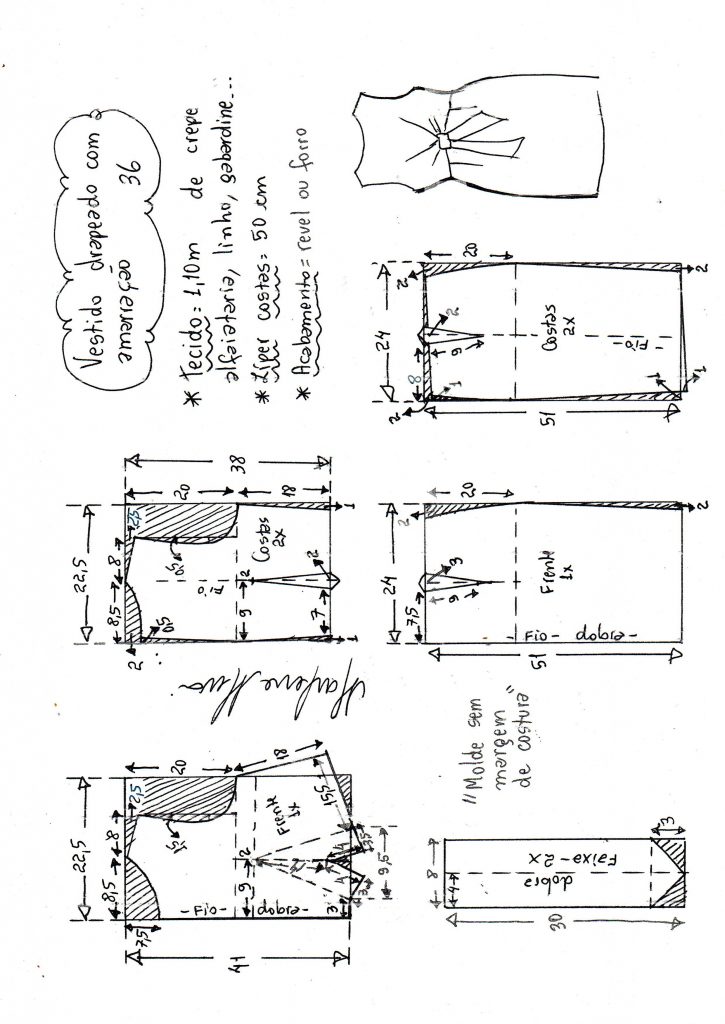 Vestido drapeado com
amarração 36
* Tecido = 1,10m de crepe
alfaiataria, linho, gabardine...
* Zíper costas = 50 cm
* Acabamento = revel ou forro
22,5
8,5
8
2,5
7,5
1,5
20
18
41
9
2
Frente
1x
- Fio - dobra -
15,5
3
9,5
22,5
8,5
8
2,5
2
0,5
0,5
20
18
38
9
2
Fio
Costas
2x
7
2
1
1
Marlene Mukai
"Molde sem
margem
de costura"
8
4
dobra
Faixa - 2x
30
3
24
7,5
2
20
3
9
Frente
1x
- Fio - dobra -
51
2
24
8
2
2
20
2
1
9
Costas
2x
- Fio -
51
1
1
2